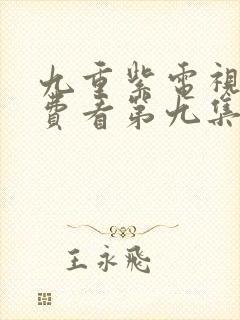 九重紫電視
費看第九集
王永飛